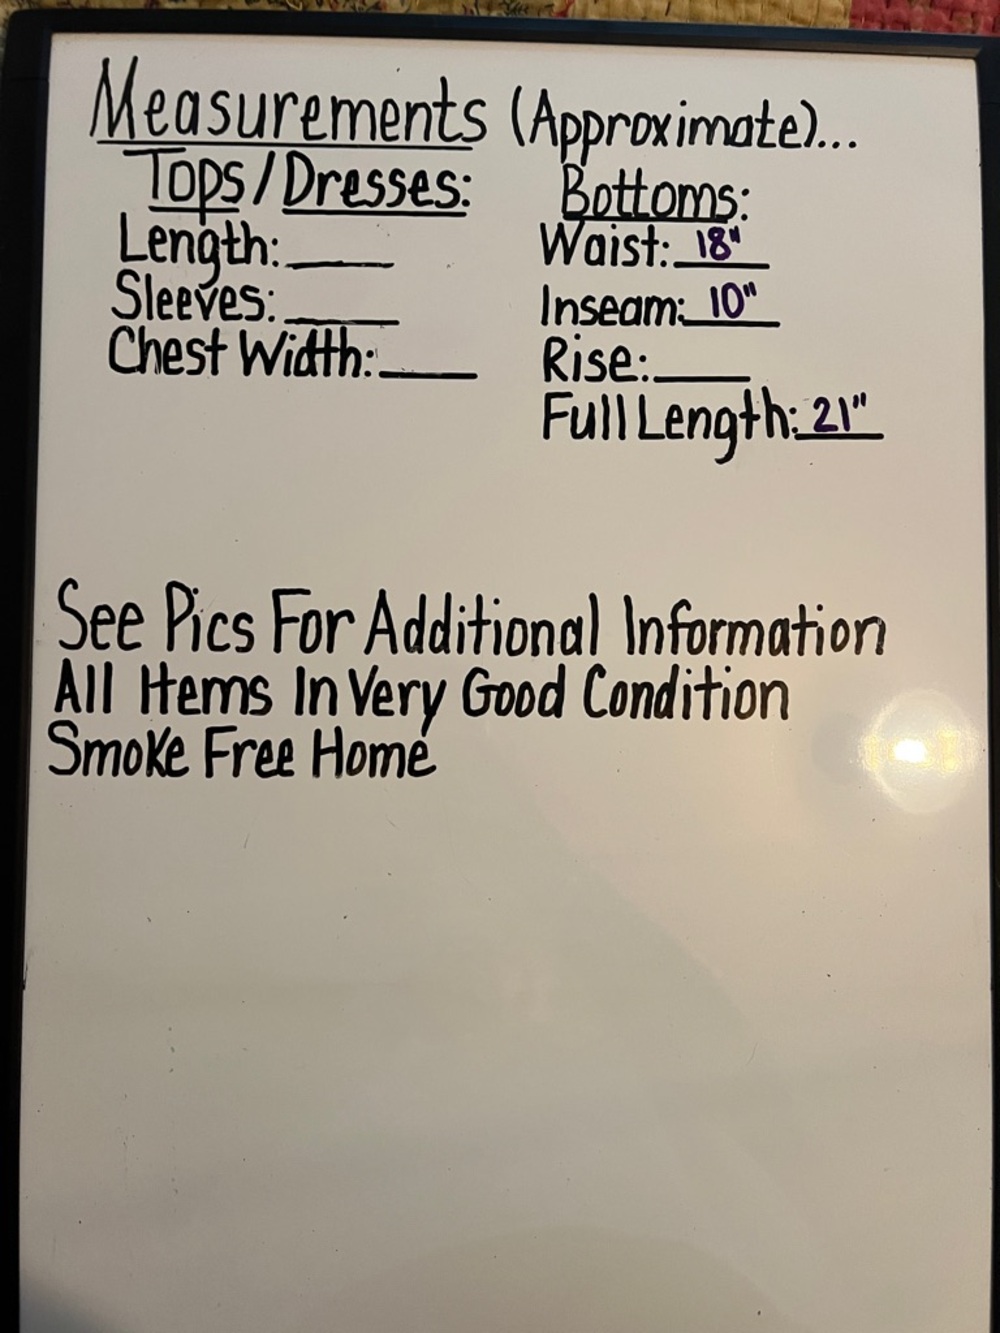 Measurements (Approximate)...
Tops/Dresses:
Length: ____
Sleeves: ____
Chest Width: ____
Bottoms:
Waist: 18"
Inseam: 10"
Rise: ____
Full Length: 21"
See Pics For Additional Information
All Items In Very Good Condition
Smoke Free Home